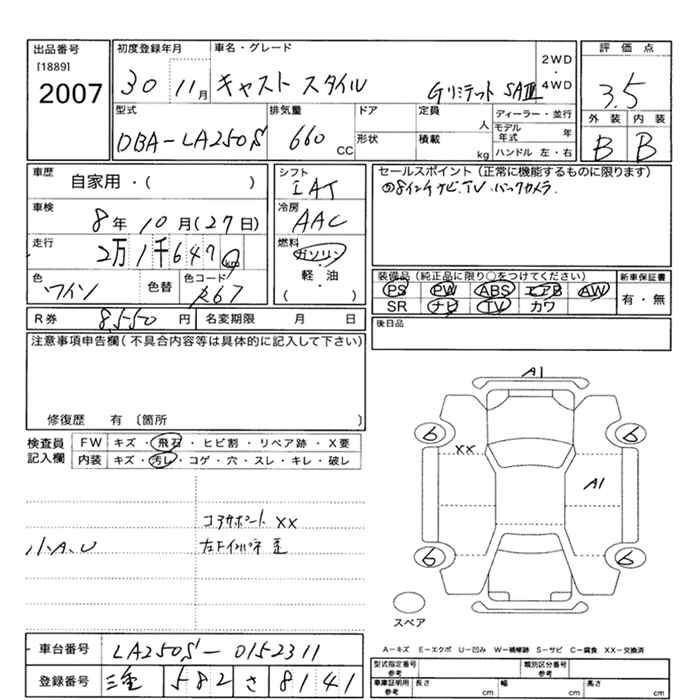 出品番号
[1889]
2007
初度登録年月
30 11月
車名・グレード
キャスト スタイル Gリミテッド SAⅢ
2WD
・
4WD
評価点
3.5
外装 内装
B B
型式
DBA-LA250S
排気量
660 CC
ドア
形状
定員
人
積載
kg
ディーラー・並行
モデル年式 年
ハンドル 左・右
車歴
自家用・( )
車検
8年 10月(27日)
走行
2万1千647 km
色
ワイン
色替
色コード
R67
シフト
IAT
冷房
AAC
燃料
ガソリン・
軽・油
( )
セールスポイント(正常に機能するものに限ります)
8インチナビ.TV.バックカメラ
装備品(純正品に限り○をつけてください)
PS PW ABS エアB AW
SR ナビ TV カワ
新車保証書
有・無
R券 8,550 円
名変期限 月 日
後日品
注意事項申告欄(不具合内容等は具体的に記入して下さい)
修復歴 有〔箇所 〕
検査員
記入欄
FW キズ・飛石・ヒビ割・リペア跡・X要
内装 キズ・汚し・コゲ・穴・スレ・キレ・破レ
コアサポート XX
小A.U
左Fインパネ 歪
A1
6 6
XX
A1
6 6
スペア
A-キズ E-エクボ U-凹み W-補修跡 S-サビ C-腐食 XX-交換済
車台番号 LA250S-0152311
登録番号 三重 582 さ 8141
型式指定番号
参考
類別区分番号
参考
車庫証明用
参考
長さ cm
幅 cm
高さ cm